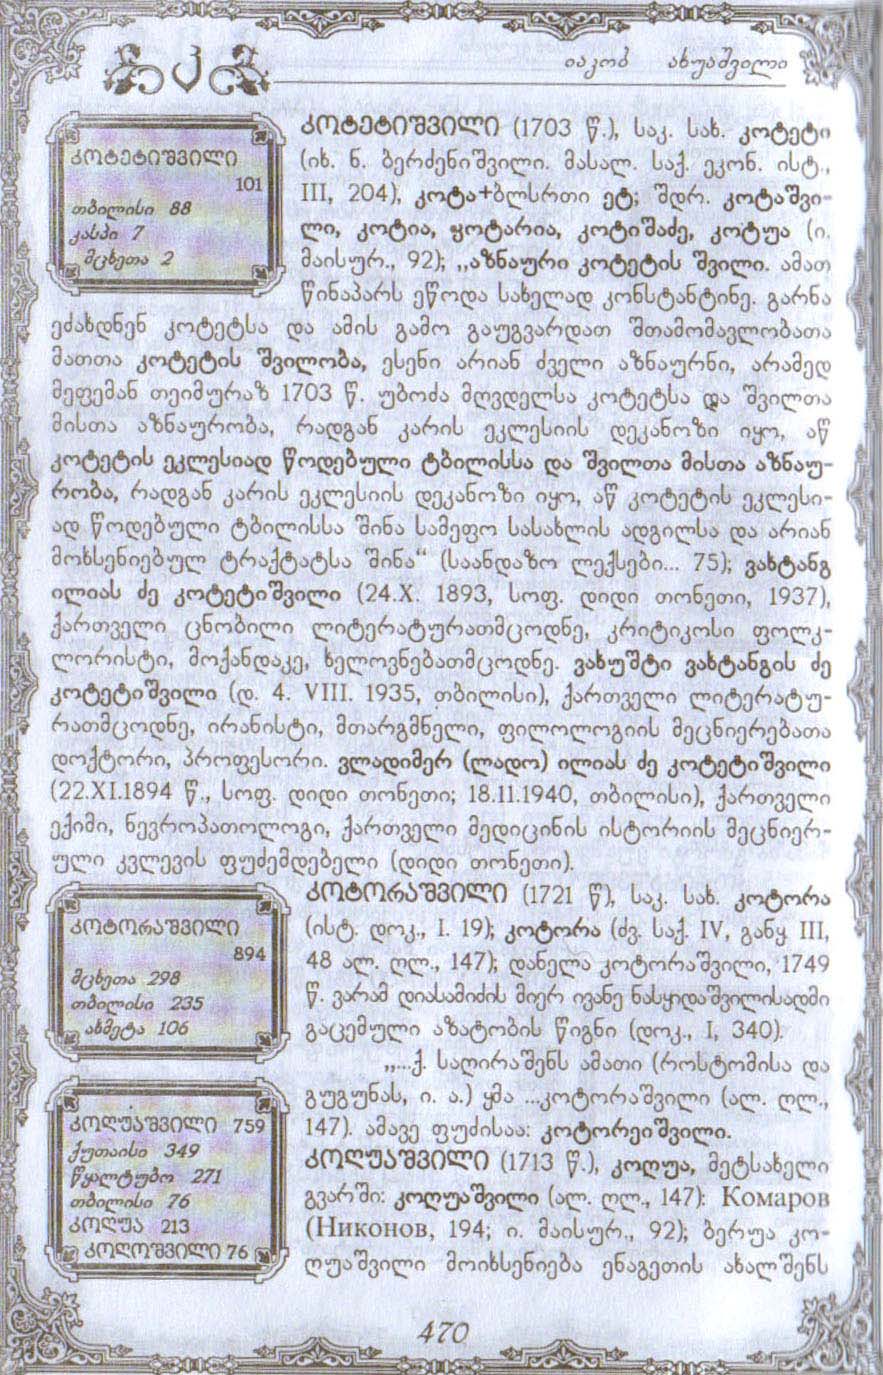 კ
იაკობ ახუაშვილი
კოტეტიშვილი
101
თბილისი 88
კასპი 7
მცხეთა 2
კოტეტიშვილი (1703 წ.), საკ. სახ. კოტეტი
(იხ. ნ. ბერძენიშვილი. მასალ. საქ. ეკონ. ისტ.,
III, 204), კოტა+ბლსრთი ეტ; შდრ. კოტაშვი-
ლი, კოტია, ყოტარია, კოტიშაძე, კოტუა (ი.
მაისურ., 92); „აზნაური კოტეტის შვილი. ამათ
წინაპარს ეწოდა სახელად კონსტანტინე. გარნა
ეძახდნენ კოტეტსა და ამის გამო გაუგვარდათ შთამომავლობათა
მათთა კოტეტის შვილობა, ესენი არიან ძველი აზნაურნი, არამედ
მეფემან თეიმურაზ 1703 წ. უბოძა მღვდელსა კოტეტსა და შვილთა
მისთა აზნაურობა, რადგან კარის ეკლესიის დეკანოზი იყო, აწ
კოტეტის ეკლესიად წოდებული ტბილისსა და შვილთა მისთა აზნაუ-
რობა, რადგან კარის ეკლესიის დეკანოზი იყო, აწ კოტეტის ეკლესი-
ად წოდებული ტბილისსა შინა სამეფო სასახლის ადგილსა და არიან
მოხსენიებულ ტრაქტატსა შინა“ (საანდაზო ლექსები... 75); ვახტანგ
ილიას ძე კოტეტიშვილი (24.X. 1893, სოფ. დიდი თონეთი, 1937),
ქართველი ცნობილი ლიტერატურათმცოდნე, კრიტიკოსი ფოლკ-
ლორისტი, მოქანდაკე, ხელოვნებათმცოდნე. ვახუშტი ვახტანგის ძე
კოტეტიშვილი (დ. 4. VIII. 1935, თბილისი), ქართველი ლიტერატუ-
რათმცოდნე, ირანისტი, მთარგმნელი, ფილოლოგიის მეცნიერებათა
დოქტორი, პროფესორი. ვლადიმერ (ლადო) ილიას ძე კოტეტიშვილი
(22.XI.1894 წ., სოფ. დიდი თონეთი; 18.11.1940, თბილისი), ქართველი
ექიმი, ნევროპათოლოგი, ქართველი მედიცინის ისტორიის მეცნიერ-
ული კვლევის ფუძემდებელი (დიდი თონეთი).
კოტორაშვილი
894
მცხეთა 298
თბილისი 235
ახმეტა 106
კოტორაშვილი (1721 წ), საკ. სახ. კოტორა
(ისტ. დოკ., I. 19); კოტორა (ძვ. საქ. IV, განყ. III,
48 ალ. ღლ., 147); დანელა კოტორაშვილი, 1749
წ. ვარამ დიასამიძის მიერ ივანე ნასყიდაშვილისადმი
გაცემული აზატობის წიგნი (დოკ., I, 340).
„...ქ. საღირაშენს ამათი (როსტომისა და
გუგუნას, ი. ა.) ყმა ...კოტორაშვილი (ალ. ღლ.,
147). ამავე ფუძისაა: კოტორეიშვილი.
კოღუაშვილი 759
ქუთაისი 349
წყალტუბო 271
თბილისი 76
კოღუა 213
კოღოშვილი 76
კოღუაშვილი (1713 წ.), კოღუა, მეტსახელი
გვარში: კოღუაშვილი (ალ. ღლ., 147): Комаров
(Никонов, 194; ი. მაისურ., 92); ბერუა კო-
ღუაშვილი მოიხსენიება ენაგეთის ახალშენს
470